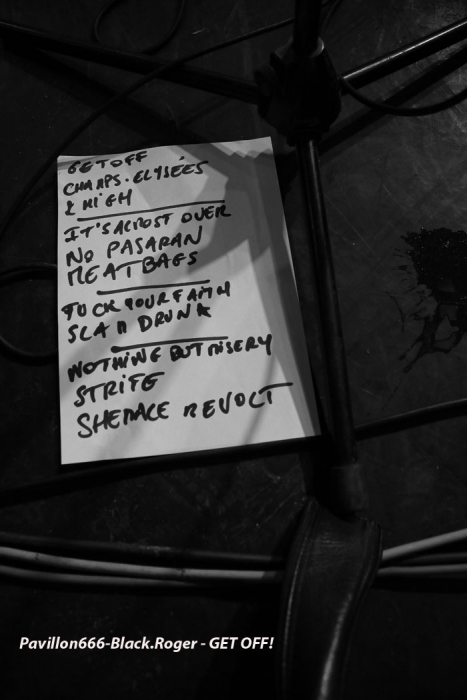 GET OFF
CHAMPS-ELYSÉES
& HIGH
IT'S ALMOST OVER
NO PASARAN
MEATBAGS
FUCK YOUR FAITH
SLAM DRUNK
NOTHING BUT MISERY
STRIFE
SHEMALE REVOLT
Pavillon666-Black.Roger - GET OFF!